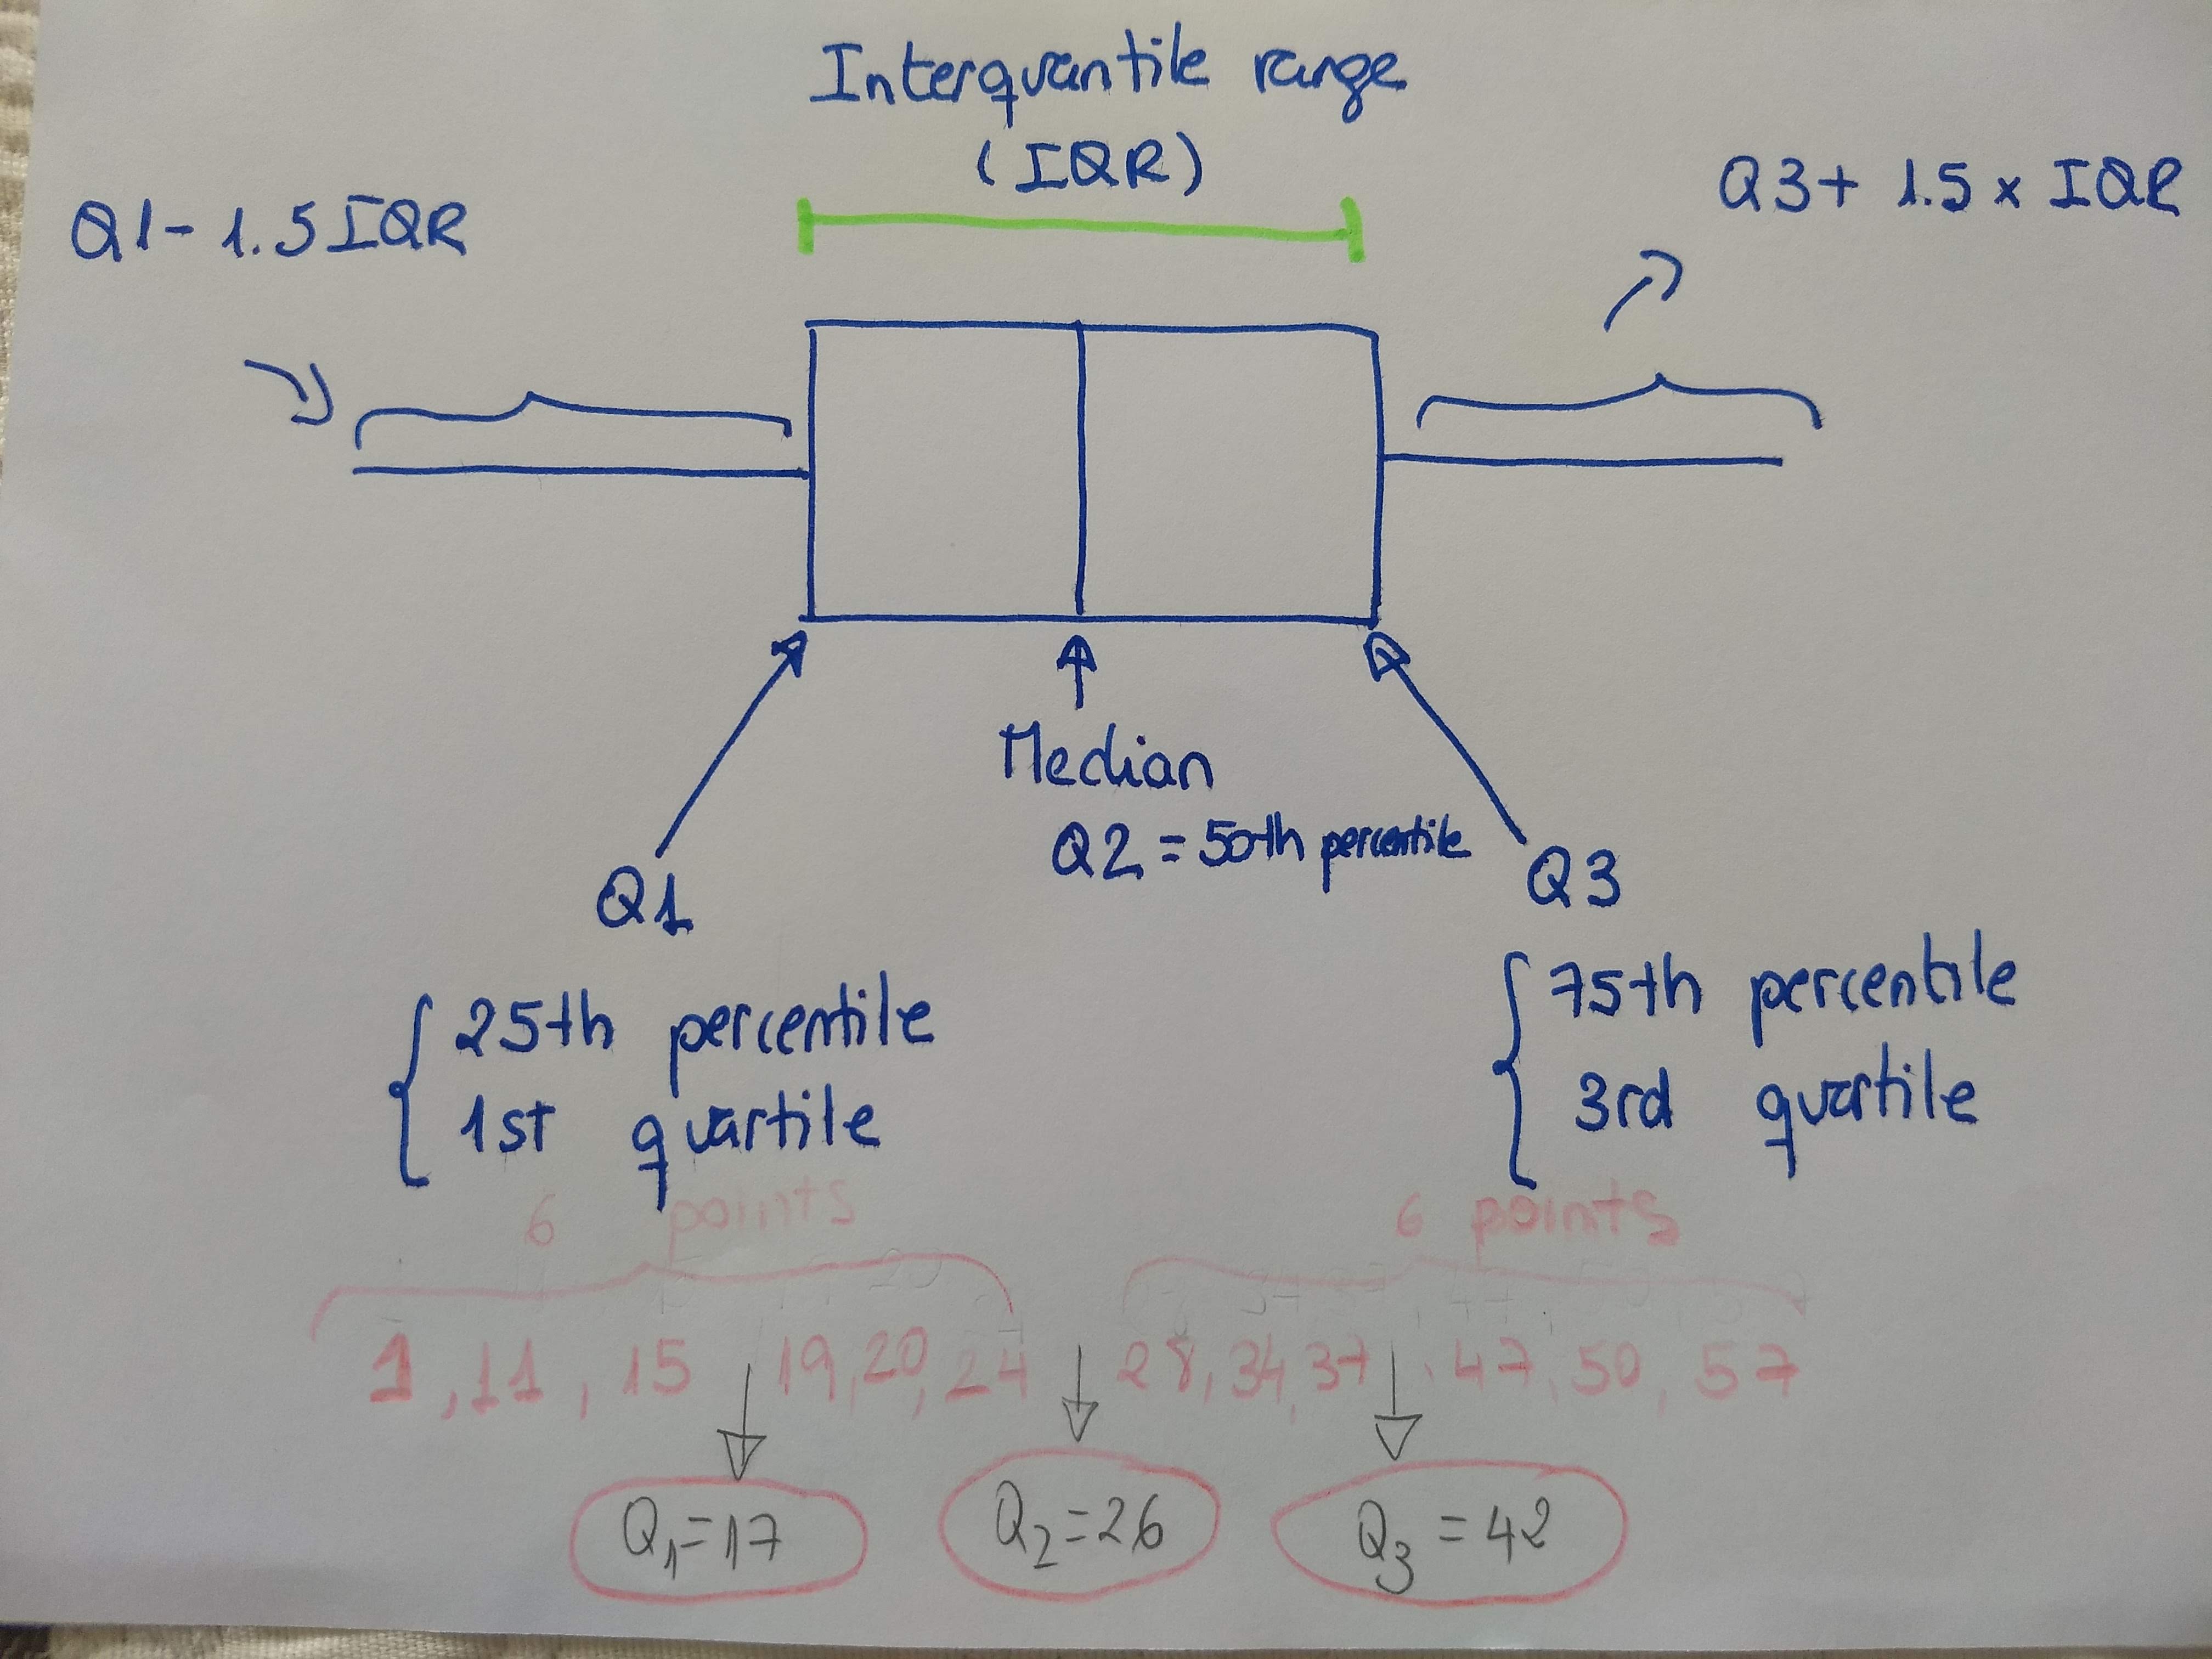 Interquantile range
(IQR)
Q1 - 1.5 IQR
Q3 + 1.5 x IQR
Median
Q2 = 50th percentile
Q1
Q3
25th percentile
1st quartile
75th percentile
3rd quartile
6 points
6 points
1, 11, 15 19, 20, 24 28, 34, 37 47, 50, 57
Q1=17
Q2=26
Q3=42